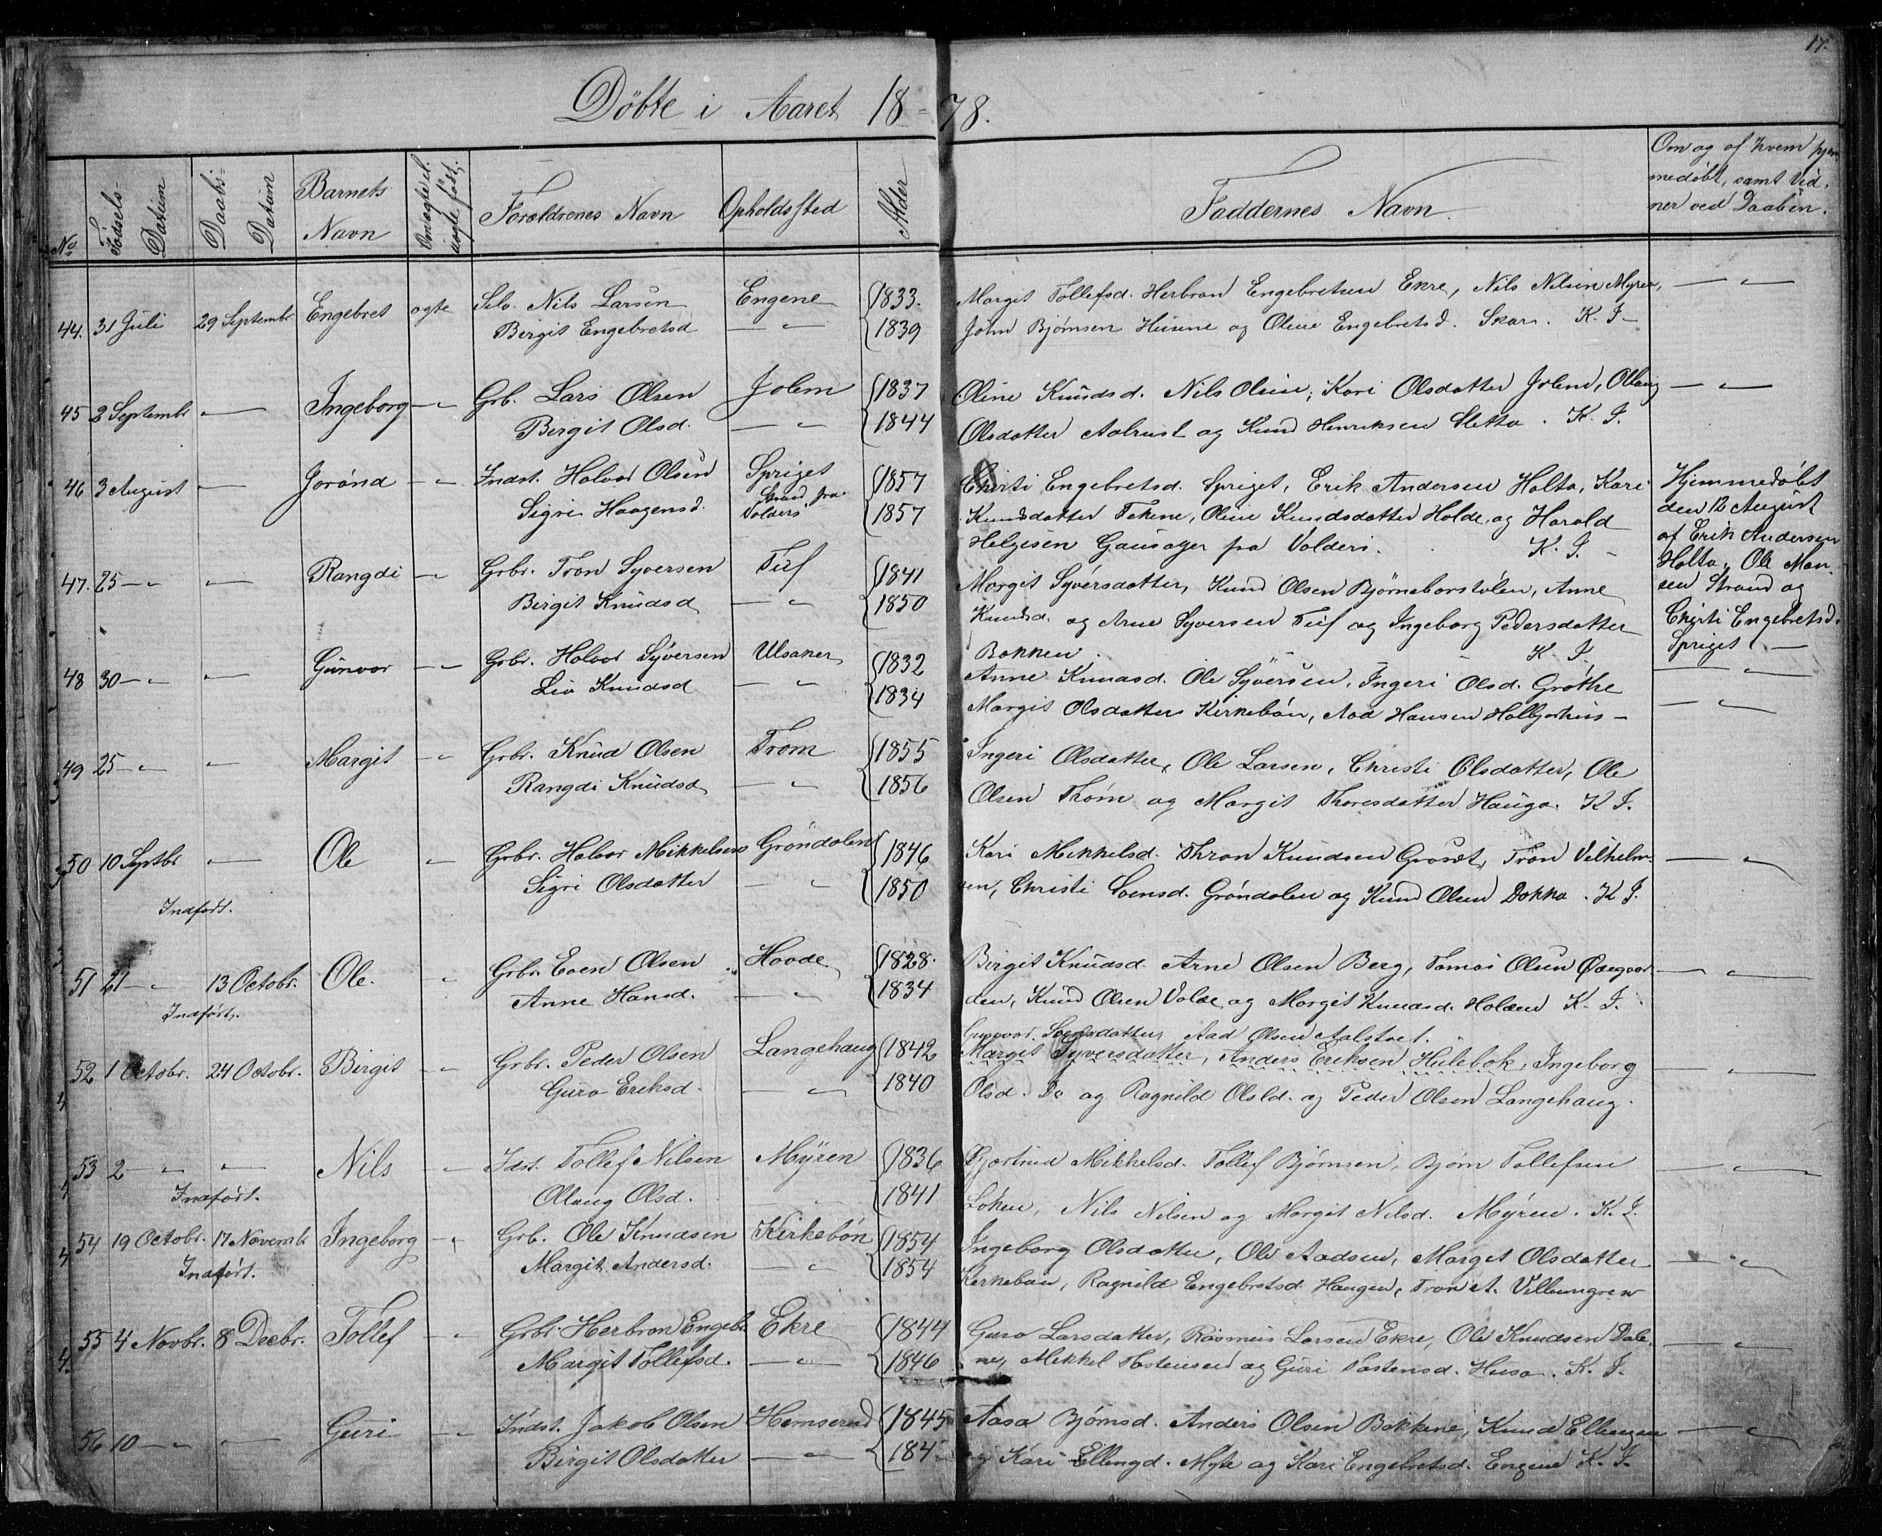 17.
Döbte i Aaret 18-78.
No
Födsels-Datum
Daabs-Datum
Barnets Navn
Om ægte el. uægte født.
Forældrenes Navn
Opholdssted
Alder
Faddernes Navn.
Om og af hvem hjemmedøbt, samt Vidner ved Daaben.
44. 31 Juli 29 Septembr Engebret ægte Selv. Nils Larsen Engene 1833. Margit Tollefsd. Herbran Engebretsen Ekre, Nils Nilsen Myren,
Birgit Engebretsd — " — 1839 John Bjørnsen Husene og Oline Engebretsd. Skar. K. I.
45 2 Septembr — " — Ingeborg — " — Grb. Lars Olsen Jolem 1837 Oline Knudsd. Nils Olsen, Kari Olsdatter Jolem, Ollaug
Birgit Olsd. — " — 1844 Olsdatter Aalrust og Knud Henriksen Sletto. K. I.
46 3 August — " — Jorånd — " — Indst. Holvor Olsen Spriget 1857 Christi Engebretsd. Spriget, Erik Andersen Holto, Kari Hjemmedöbt
Sigri Haagensd. Grund fra Valders 1857 Knudsdatter Tekene, Oline Knudsdatter Holde, og Harald den 12 August
Helgesen Gausager fra Valders. K. I. af Erik Andersen
47. 25 — " — — " — Rangdi — " — Grbr. Tron Syversen Tuf 1841 Margit Syversdatter, Knud Olsen Bjørneborstølen, Anne Holto, Ole Mon-
Birgit Knudsd — " — 1850 Knudsd. og Arne Syversen Tuf og Ingeborg Pedersdatter sen Strand og
Bakken. K. I. Christi Engebretsd. Spriget.
48 30 — " — — " — Gunvor — " — Grbr. Holvor Syversen Ulsaker 1832 Anne Knudsd. Ole Syversen, Ingeri Olsd. Gröthe
Liv Knudsd — " — 1834 Margit Olsdatter Kirkebön, Aad Hansen Halbjorhus —
49 25 — " — — " — Margit — " — Grbr. Knud Olsen Trom 1855 Ingeri Olsdatter, Ole Larsen, Christi Olsdatter, Ole
Rangdi Knudsd — " — 1856 Olsen Thröm og Margit Thoresdatter Hauga. K I.
50 10 Septbr — " — Ole — " — Grbr. Holvor Mikkelsen Gröndalen 1846 Kari Mikkelsd. Thron Knudsen Grosæt, Tron Vilhelm-
Sigri Olsdatter — " — 1850 sen, Christi Svensd. Gröndolen og Knud Olsen Dokka. K I.
Indført.
51 21 — " — 13 Octobr. Ole. — " — Grbr. Even Olsen Hovde 1828. Birgit Knudsd. Arne Olsen Berg, Tomas Olsen Ødegaar-
Anne Hansd. — " — 1834 den, Knud Olsen Volde og Margit Knudsd. Holæn K. I.
Indført.
Gunvor Svensdatter, Aad Olsen Aalstvet.
52 1 Octobr. 24 Octobr. Birgit — " — Grbr. Peder Olsen Langehaug 1842 Margit Syversdatter, Anders Eriksen Hulebok, Ingeborg
Guro Eriksd. — " — 1840 Olsd. Do og Ragnild Olsd. og Peder Olsen Langehaug.
53 2 — " — — " — Nils — " — Idst. Tollef Nilsen Myren 1836 Gjertrud Mikkelsd. Tollef Bjørnsen, Bjørn Tollefsen
Indført. Olaug Olsd. 1841 Loken, Nils Nilsen og Margit Nilsd. Myren. K. I.
54 19 Octobr. 17 Novembr Ingeborg — " — Grb. Ole Knudsen Kirkebön 1854 Ingeborg Olsdatter, Ole Aadsen, Margit Olsdatter
Indført. Margit Andersd. — " — 1854 Kirkebön, Ragnild Engebretsd. Haugen, Tron A. Villumgrev
55 4 Novbr. 8 Decbr. Tollef — " — Grbr. Herbron Engebr. Ekre 1844 Guro Larsdatter, Rasmus Larsen Ekre, Ole Knudsen Dale-
Margit Tollefsd. — " — 1846 ne, Mikkel Tostensen og Guri Tostensd. Huso. K. I.
56 10 — " — — " — Guri — " — Indst. Jakob Olsen Hemserud 1845 Aasa Bjørnsd. Anders Olsen Bakkene, Knud Ellingsen
Birgit Olsdatter — " — 184 og Kari Ellingd. Myle og Kari Engebretsd. Engene K. I.